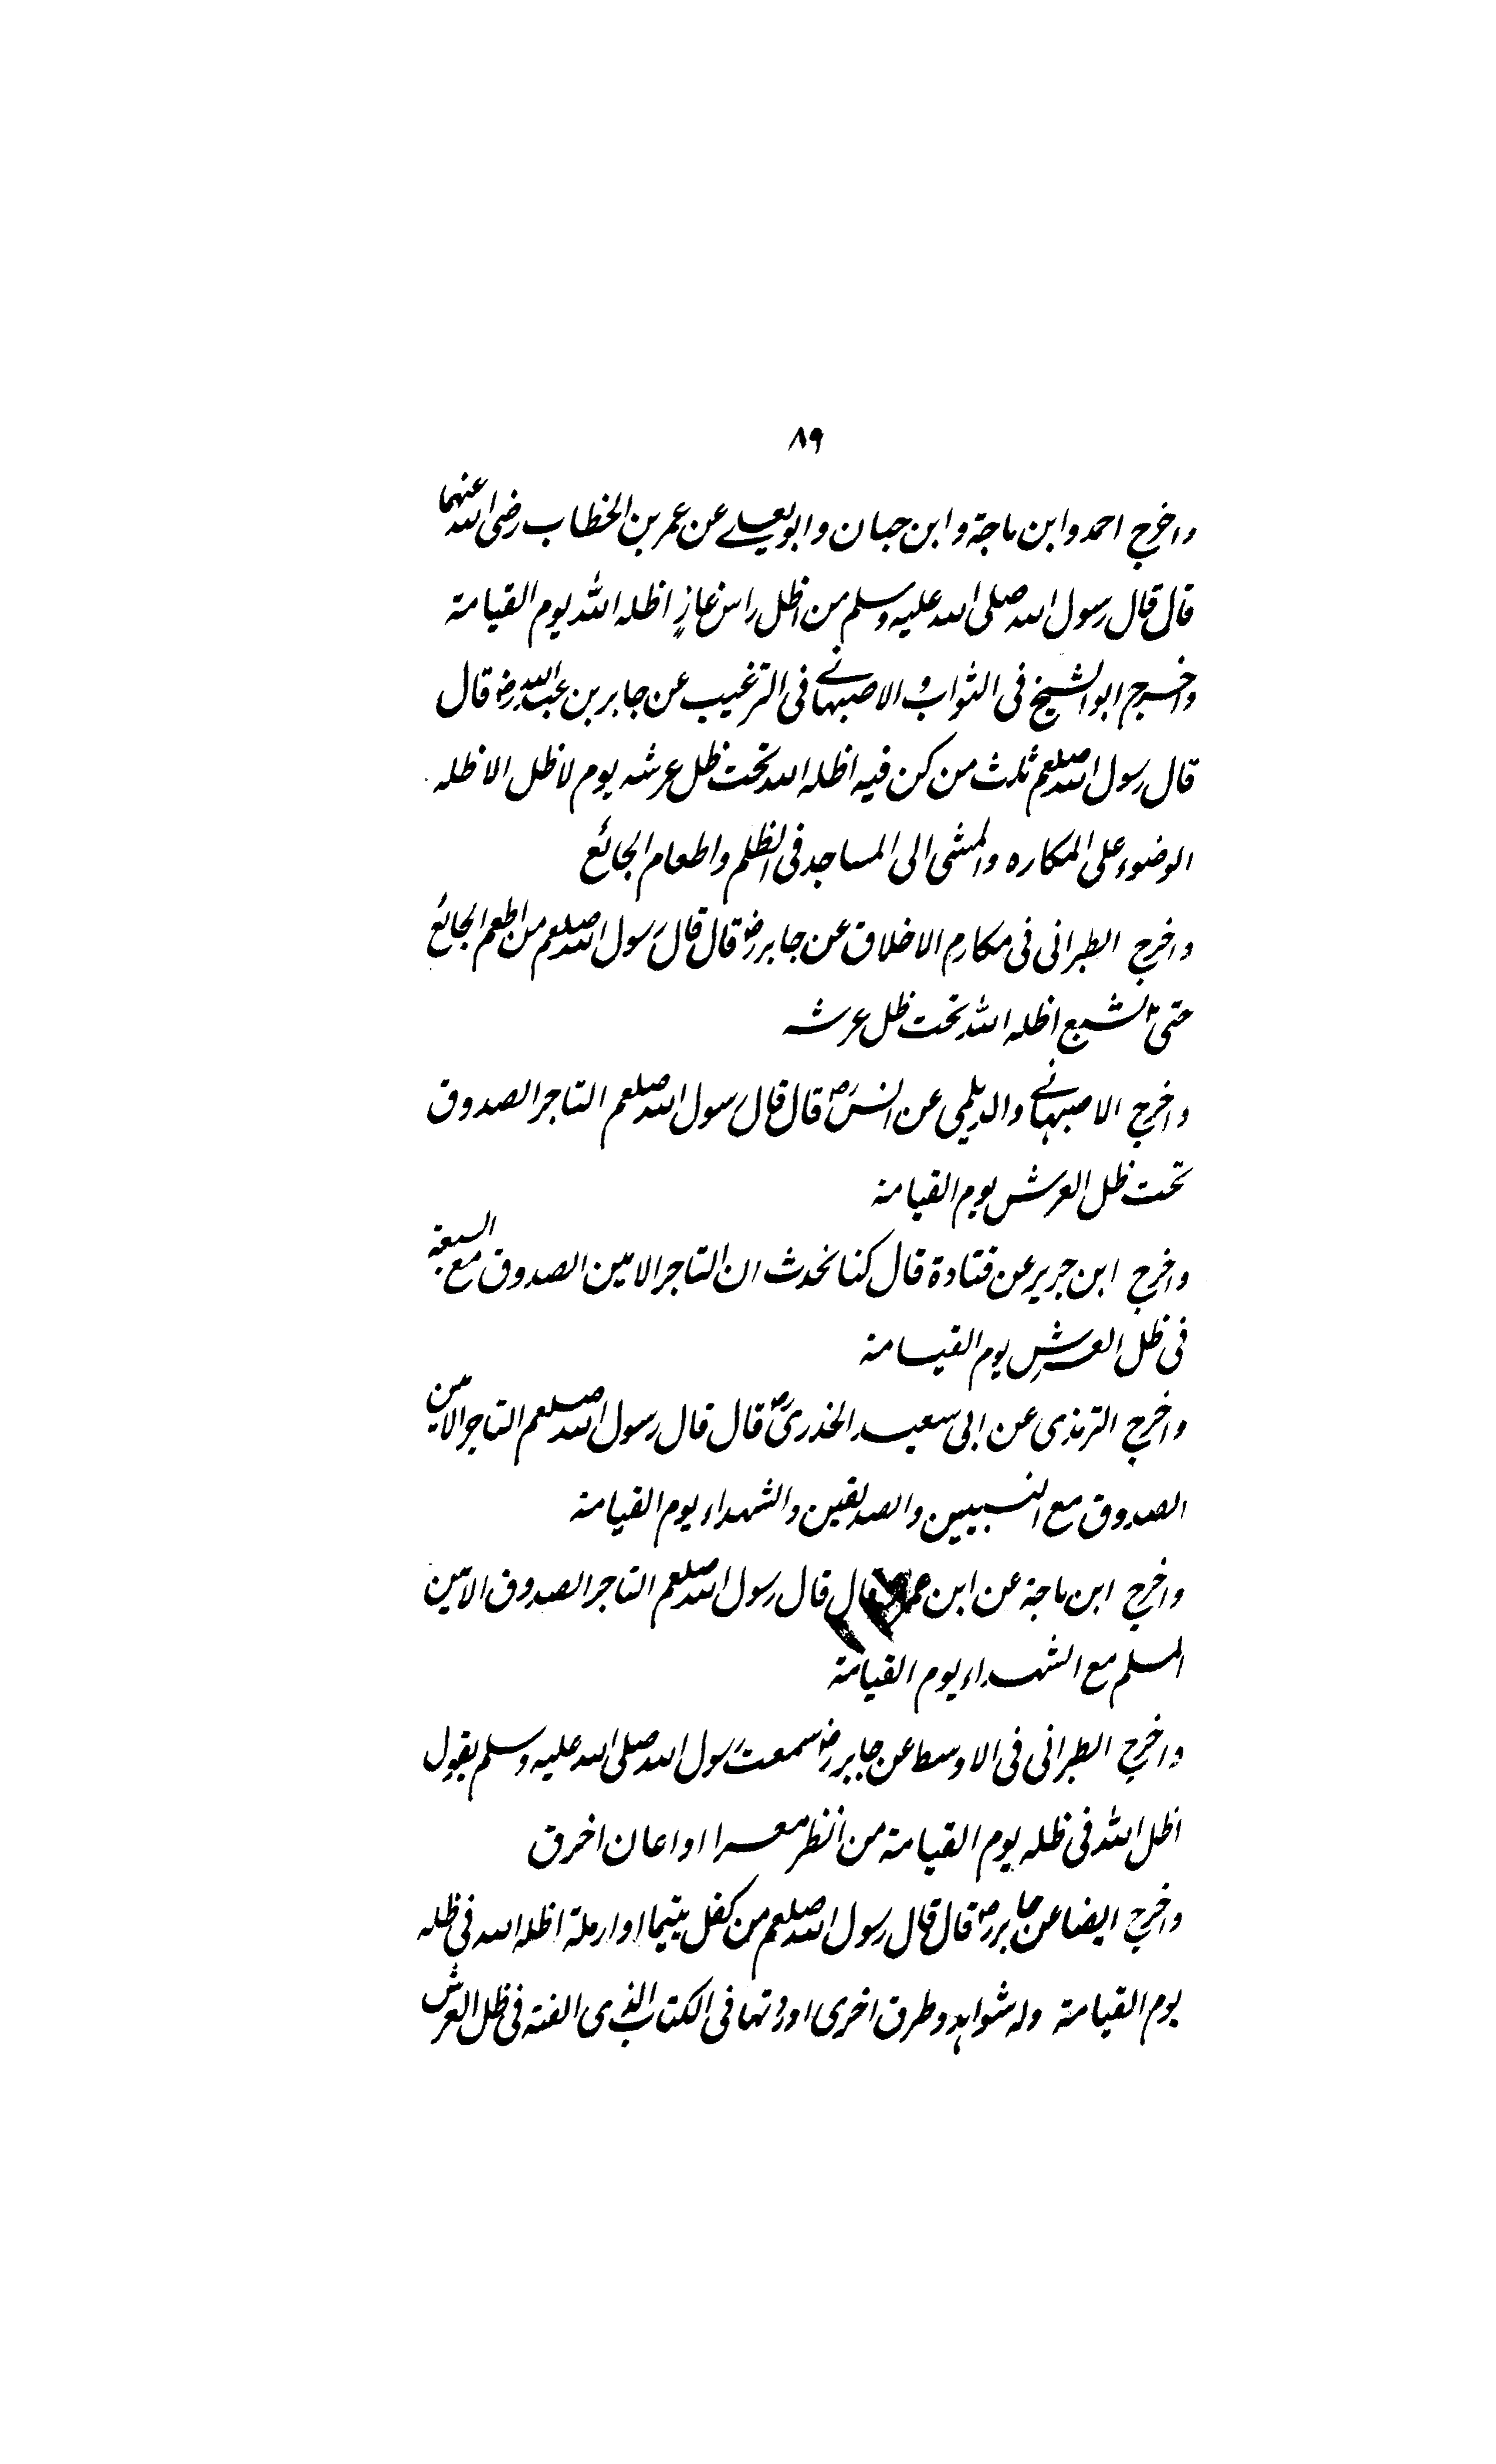 ۸۹
واخرج احمد وابن ماجة وابن حبان وابو یعلے عن عمر بن الخطاب رضی الله عنهما
قال قال رسول الله صلی الله علیه وسلم من اظل راس غازٍ اظله الله یوم القیامة
واخرج ابو الشیخ فی الثواب والاصبهانے فی الترغیب عن جابر بن عبدالله رض قال
قال رسول الله صلعم ثلث من کن فیه اظله الله تحت ظل عرشه یوم لا ظل الا ظله
الوضوء علی المکاره والمشی الی المساجد فی الظلم واطعام الجائع
واخرج الطبرانی فی مکارم الاخلاق عن جابر رض قال قال رسول الله صلعم من اطعم الجائع
حتی الشبع اظله الله تحت ظل عرشه
واخرج الاصبهانے والدیلمی عن انس رض قال قال رسول الله صلعم التاجر الصدوق
تحت ظل العرش یوم القیامة
واخرج ابن جریر عن قتادة قال کنا نحدث ان التاجر الامین الصدوق مع السبعة
فی ظل العرش یوم القیامة
واخرج الترمذی عن ابی سعید الخدری رض قال قال رسول الله صلعم التاجر الامین
الصدوق مع النبیین والصدیقین والشهداء یوم القیامة
واخرج ابن ماجة عن ابن قال قال رسول الله صلعم التاجر الصدوق الامین
المسلم مع الشهداء یوم القیامة
واخرج الطبرانی فی الاوسط عن جابر رض سمعت رسول الله صلی الله علیه وسلم یقول
اظل الله فی ظله یوم القیامة من انظر معسرا او اعان اخرق
واخرج ایضا عن جابر رض قال قال رسول الله صلعم من کفل یتیما او ارملة اظله الله فی ظله
یوم القیامة وله شواهد وطرق اخری اوردتها فی الکتاب الذی الفته فی ظل العرش